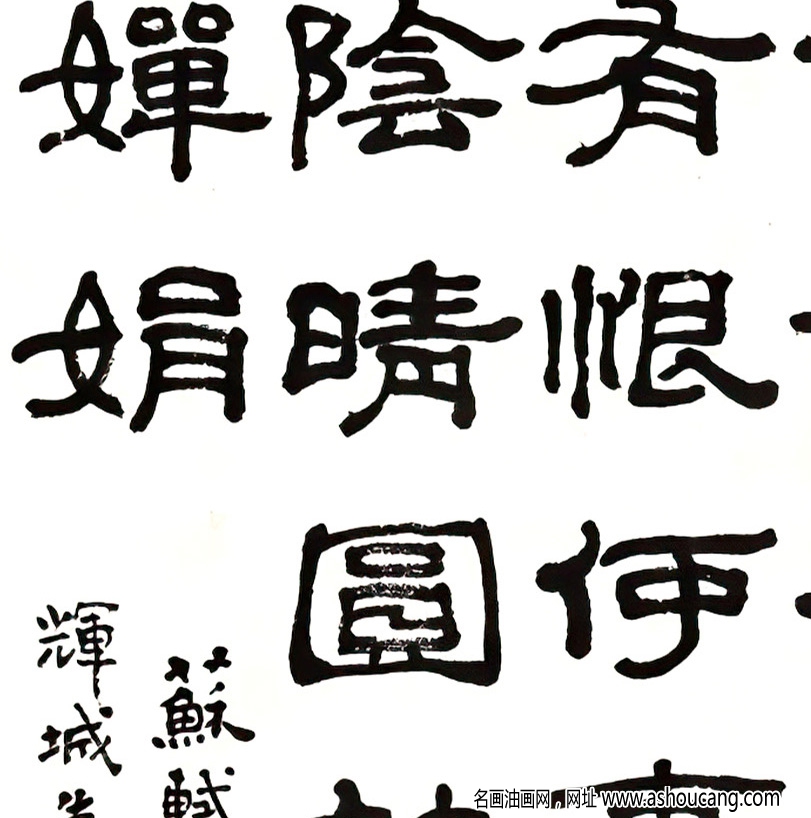 有恨何
陰晴圓
嬋娟
蘇軾
輝城
名画油画网，网址 www.ashoucang.com